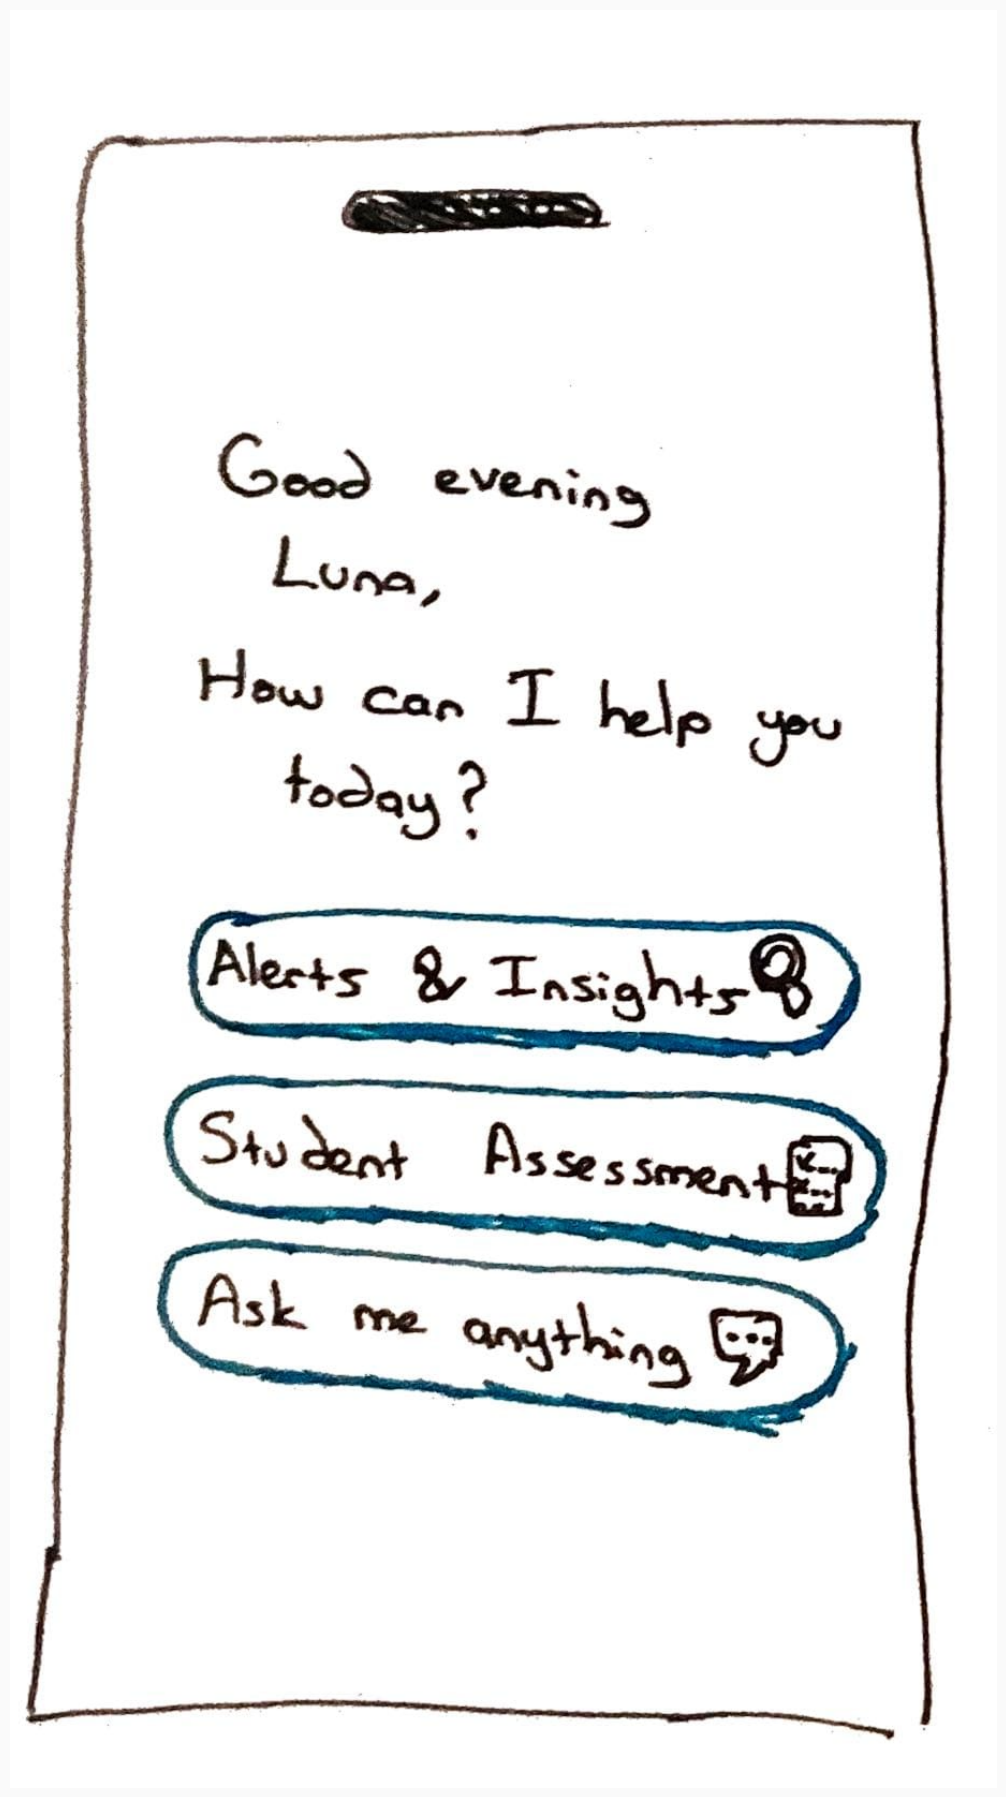 Good evening
Luna,
How can I help you
today?
Alerts & Insights
Student Assessment
Ask me anything